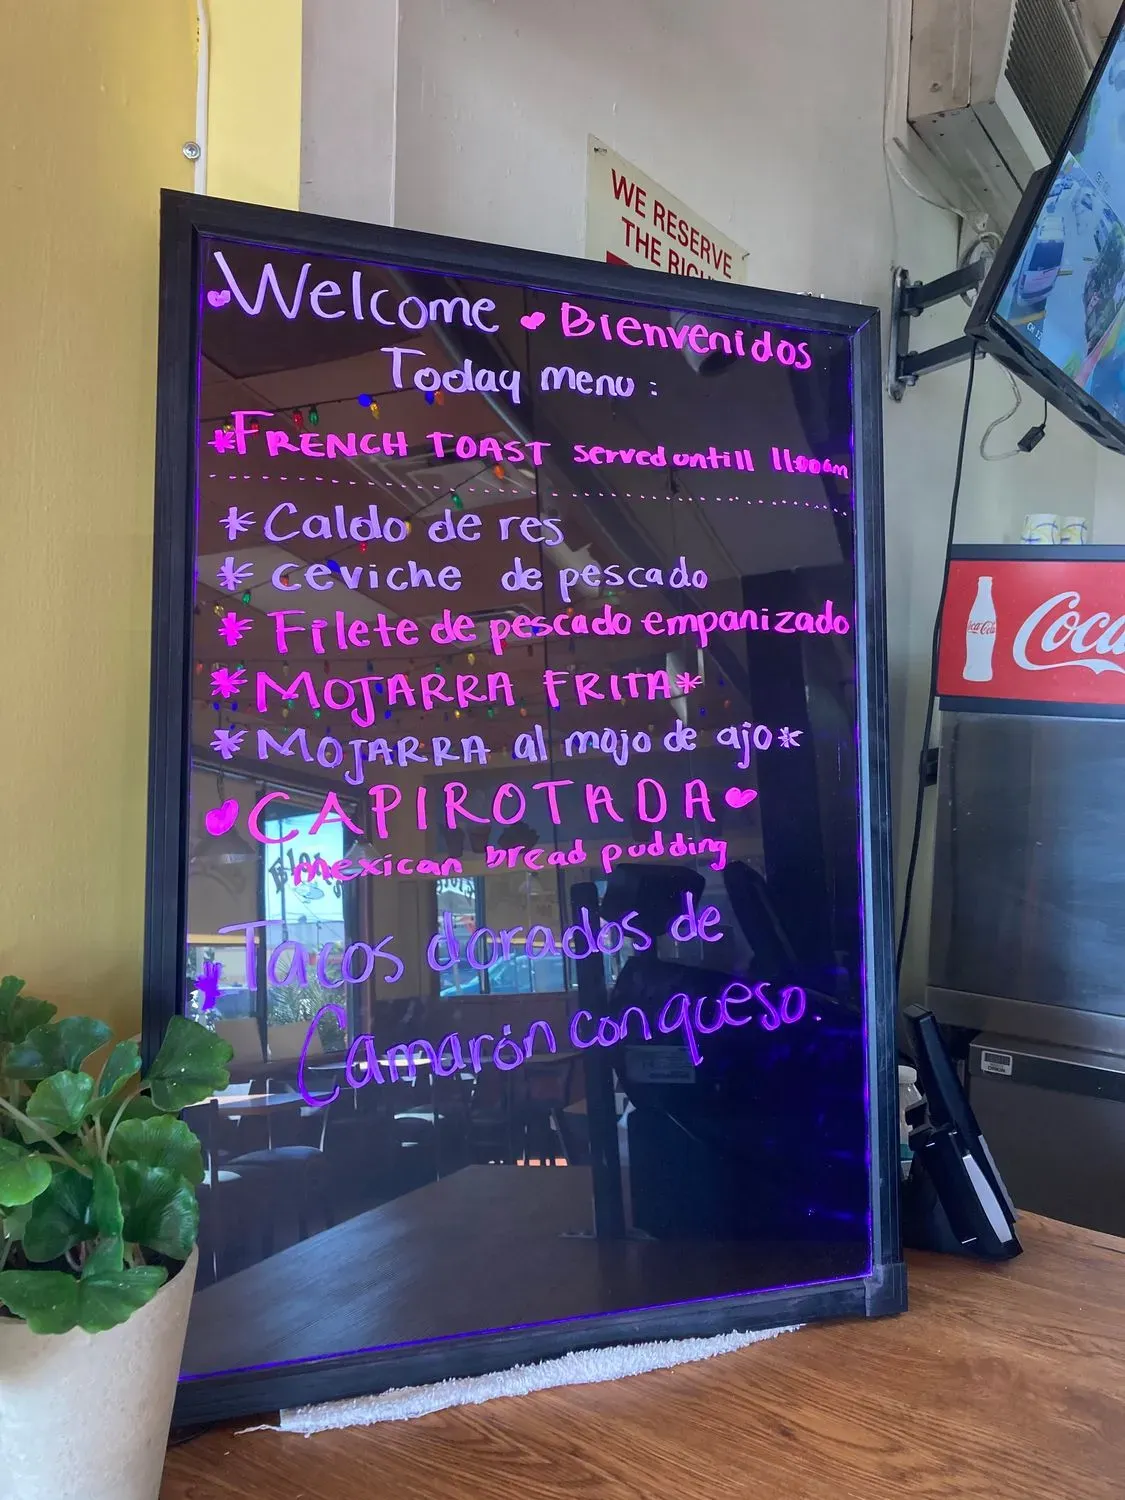 WE RESERVE
THE RIGH
♥Welcome ♥Bienvenidos
Today menu :
*FRENCH TOAST served untill 11:00am
*Caldo de res
*ceviche de pescado
*Filete de pescado empanizado
*MOJARRA FRITA*
*MOJARRA al mojo de ajo*
♥CAPIROTADA♥
mexican bread pudding
*Tacos dorados de
Camarón con queso.
Coca-Cola
Coca